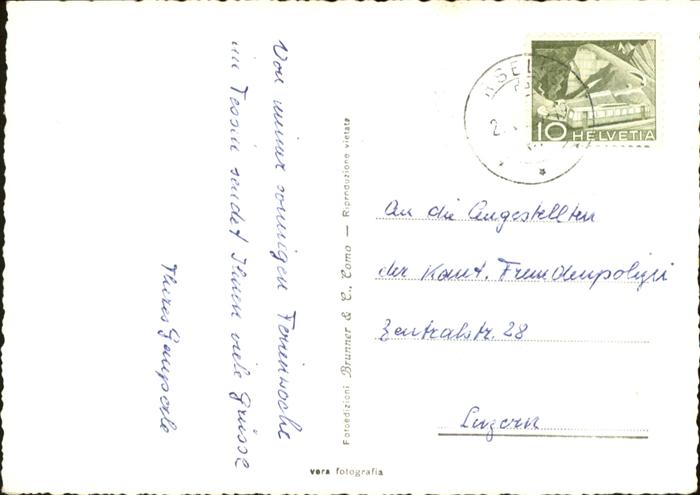 Von meiner sonnigen Ferienwoche
im Tessin sendet Ihnen viele Grüsse
Theres
Fotoedizioni Brunner & C., Como — Riproduzione vietata
vera fotografia
10 HELVETIA
An die Angestellten
der Kant. Fremdenpolizei
Zentralstr. 28
Luzern